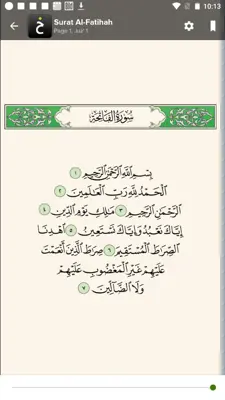 10:13
خ
Surat Al-Fatihah
Page 1, Juz' 1
سُورَةُ الْفَاتِحَةِ
بِسْمِ ٱللَّهِ ٱلرَّحْمَٰنِ ٱلرَّحِيمِ ١
ٱلْحَمْدُ لِلَّهِ رَبِّ ٱلْعَٰلَمِينَ ٢
ٱلرَّحْمَٰنِ ٱلرَّحِيمِ ٣ مَٰلِكِ يَوْمِ ٱلدِّينِ ٤
إِيَّاكَ نَعْبُدُ وَإِيَّاكَ نَسْتَعِينُ ٥ ٱهْدِنَا
ٱلصِّرَٰطَ ٱلْمُسْتَقِيمَ ٦ صِرَٰطَ ٱلَّذِينَ أَنْعَمْتَ
عَلَيْهِمْ غَيْرِ ٱلْمَغْضُوبِ عَلَيْهِمْ
وَلَا ٱلضَّآلِّينَ ٧